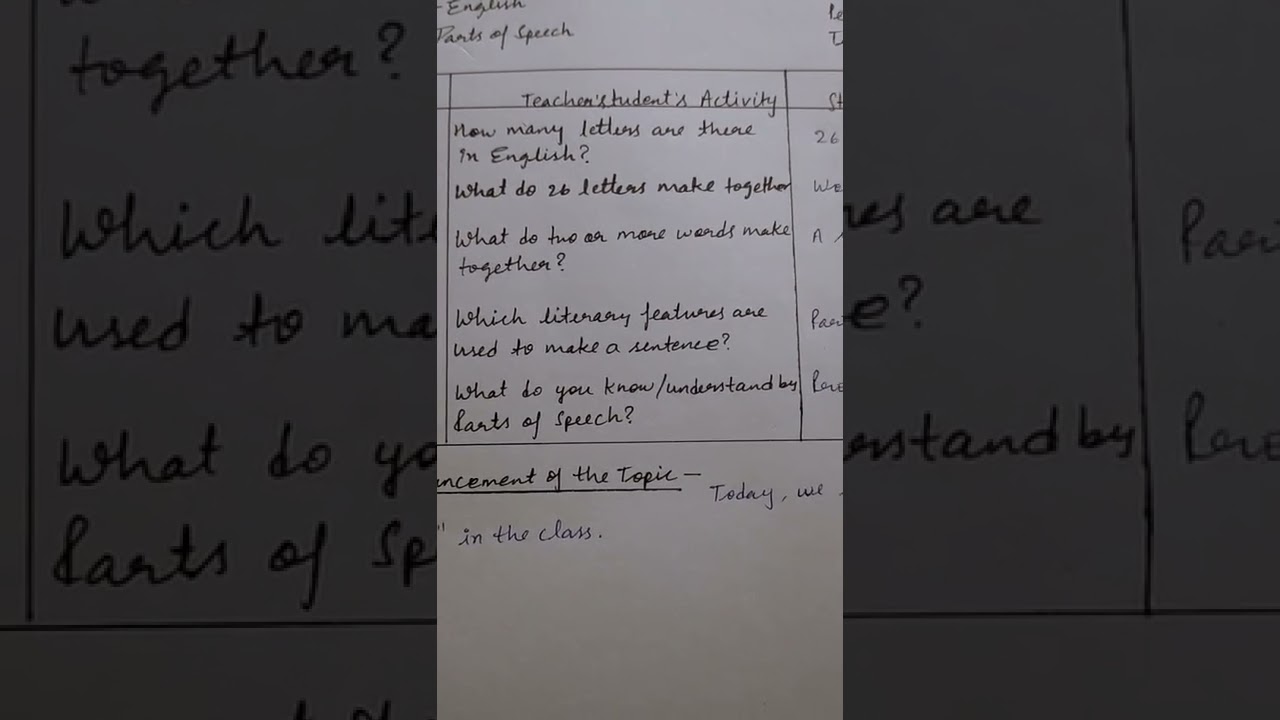 -English
Parts of Speech
Teacher'student's Activity
How many letters are there
in English?
26
What do 26 letters make together
What do two or more words make
A
together?
Which literary features are
used to make a sentence?
What do you know/understand by
Parts of Speech?
ncement of the Topic -
Today, we
" in the class.